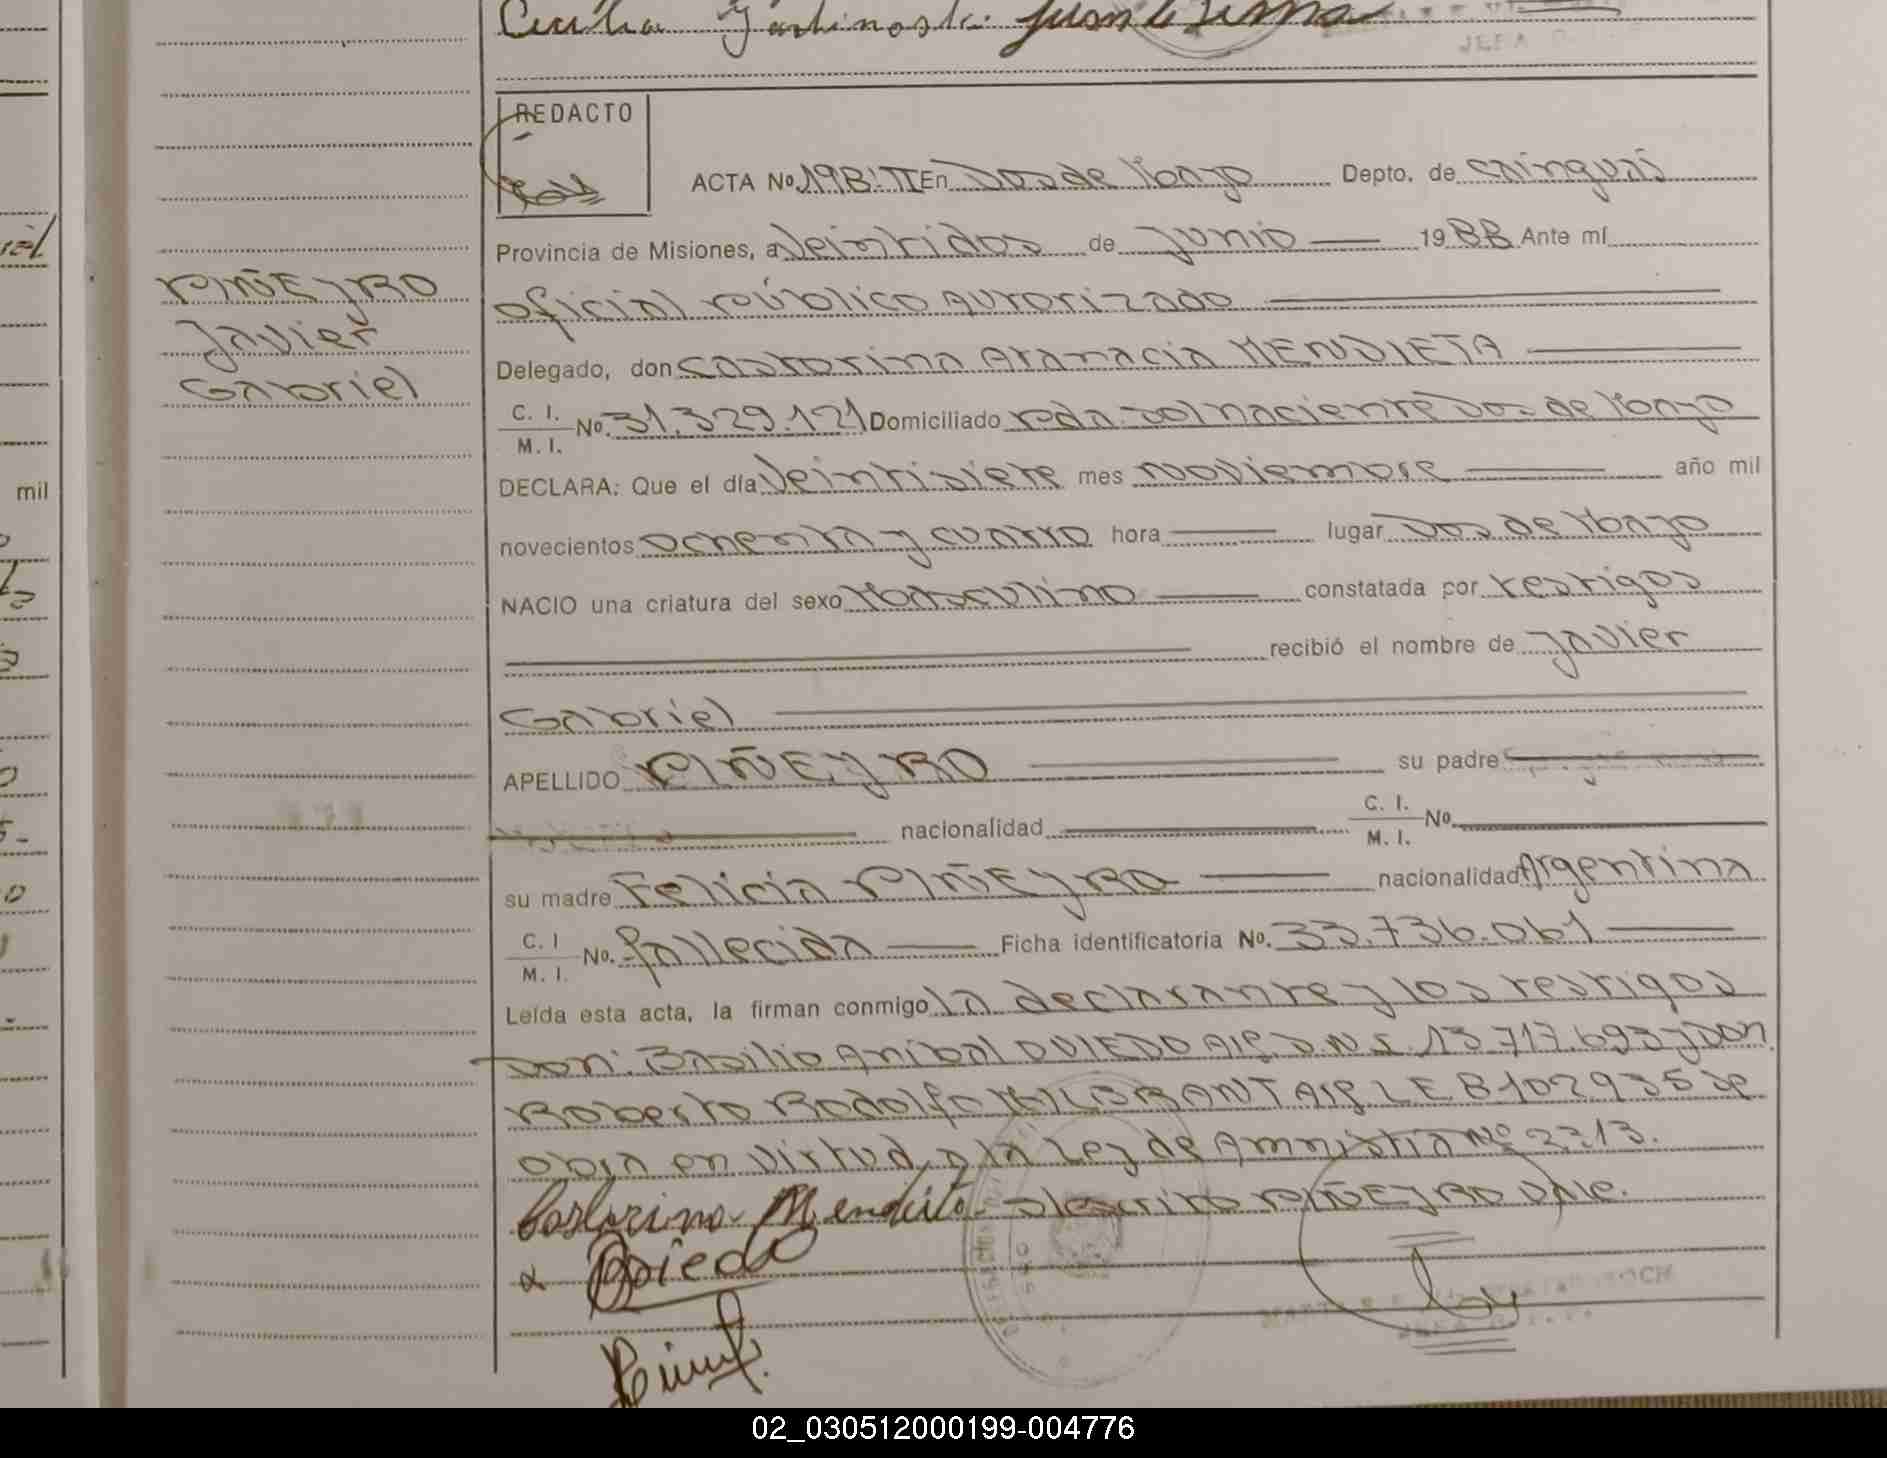 JEFA
REDACTO
ACTA No 198 TI En Dos de Mayo Depto. de Cainguás
Provincia de Misiones, a Veintidos de Junio 19 88 Ante mí
oficial público autorizado
Delegado, don Castorina Atanacia MENDIETA
C. I. / M. I. No. 31.329.121 Domiciliado rda. sol naciente Dos de Mayo
DECLARA: Que el día Veintisiete mes noviembre año mil
novecientos ochenta y cuatro hora lugar Dos de Mayo
NACIO una criatura del sexo Masculino constatada por testigos
recibió el nombre de Javier
Gabriel
APELLIDO PIÑEYRO su padre
nacionalidad C. I. / M. I. No.
su madre Felicia PIÑEYRO nacionalidad Argentina
C. I / M. I. No. fallecida Ficha identificatoria No. 33.736.061
Leída esta acta, la firman conmigo la declarante y los testigos
Don: Basilio Anibal OVIEDO Arg. D.N.I. 13.717.693 y Don
Roberto Rodolfo HILBRANT Arg L E 8102935 se
obra en virtud a la Ley de Amnistia Nº 2313.
Castorina Mendieta S/escrito PIÑEYRO vale.
Oviedo
PIÑEYRO
Javier
Gabriel
mil
02_030512000199-004776